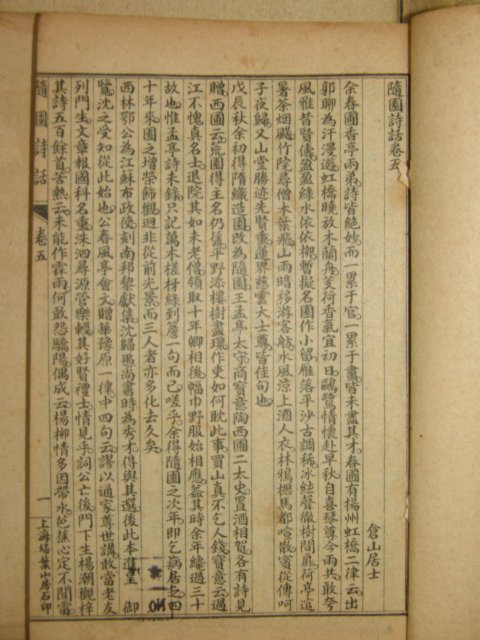 隨園詩話卷五
倉山居士
余春圃香亭兩弟詩皆絕妙而一累于官一累于畫皆未盡其才春圃有揚州虹橋二律云出
郭聊為汗漫遊虹橋曉放木蘭舟芰荷香氣宜初日鷗鷺情懷赴早秋自喜琴尊今雨共敢夸
風雅昔賢儔盈盈綠水依依 暫擬名園作小留雁落平沙古調稀冰絃聲徹樹間扉荷亭逭
暑茶烟颺竹院尋僧木葉飛山雨暗移游客舫水風涼上酒人衣林鴉櫪馬都喧散賓從傳呵
子夜歸又山堂勝迹先賢重蓮界慈雲大士尊皆佳句也
戊辰秋余初得隋織造園改為隨園王孟亭太守商寶意陶西圃二太史置酒相賀各有詩見
贈西圃云荒園得主名仍舊平野添樓樹盡環作吏如何耽此事買山真不乞人錢寶意云過
江不愧真名士退院其如未老僧領取十年卿相後幅巾野服始相應蓋其時余年纔過三十
故也惟孟亭詩未錄只記萬木槎枒綠到簷一句而已嗟乎余得隨園之次年即乞病居之四
十年來園之增榮飾觀迥非從前光景而三人者亦多化去久矣
西林鄂公為江蘇布政使刻南邦黎獻集沈歸愚尚書時為秀才得與其選後此本進呈 御
覽沈之受知從此始也公春風亭會文贈華豫原一律中四句云謬以通家尊世講敢當老友
列門生文章報國科名重洙泗尋源管樂輕其好賢禮士情見乎詞公亡後門下士楊潮觀梓
其詩五百餘首苦熱云未能作霖雨何敢怨驕陽偶成云楊柳情多因帶水芭蕉心定不聞雷
隨園詩話 卷五 一 上海埽葉山房石印